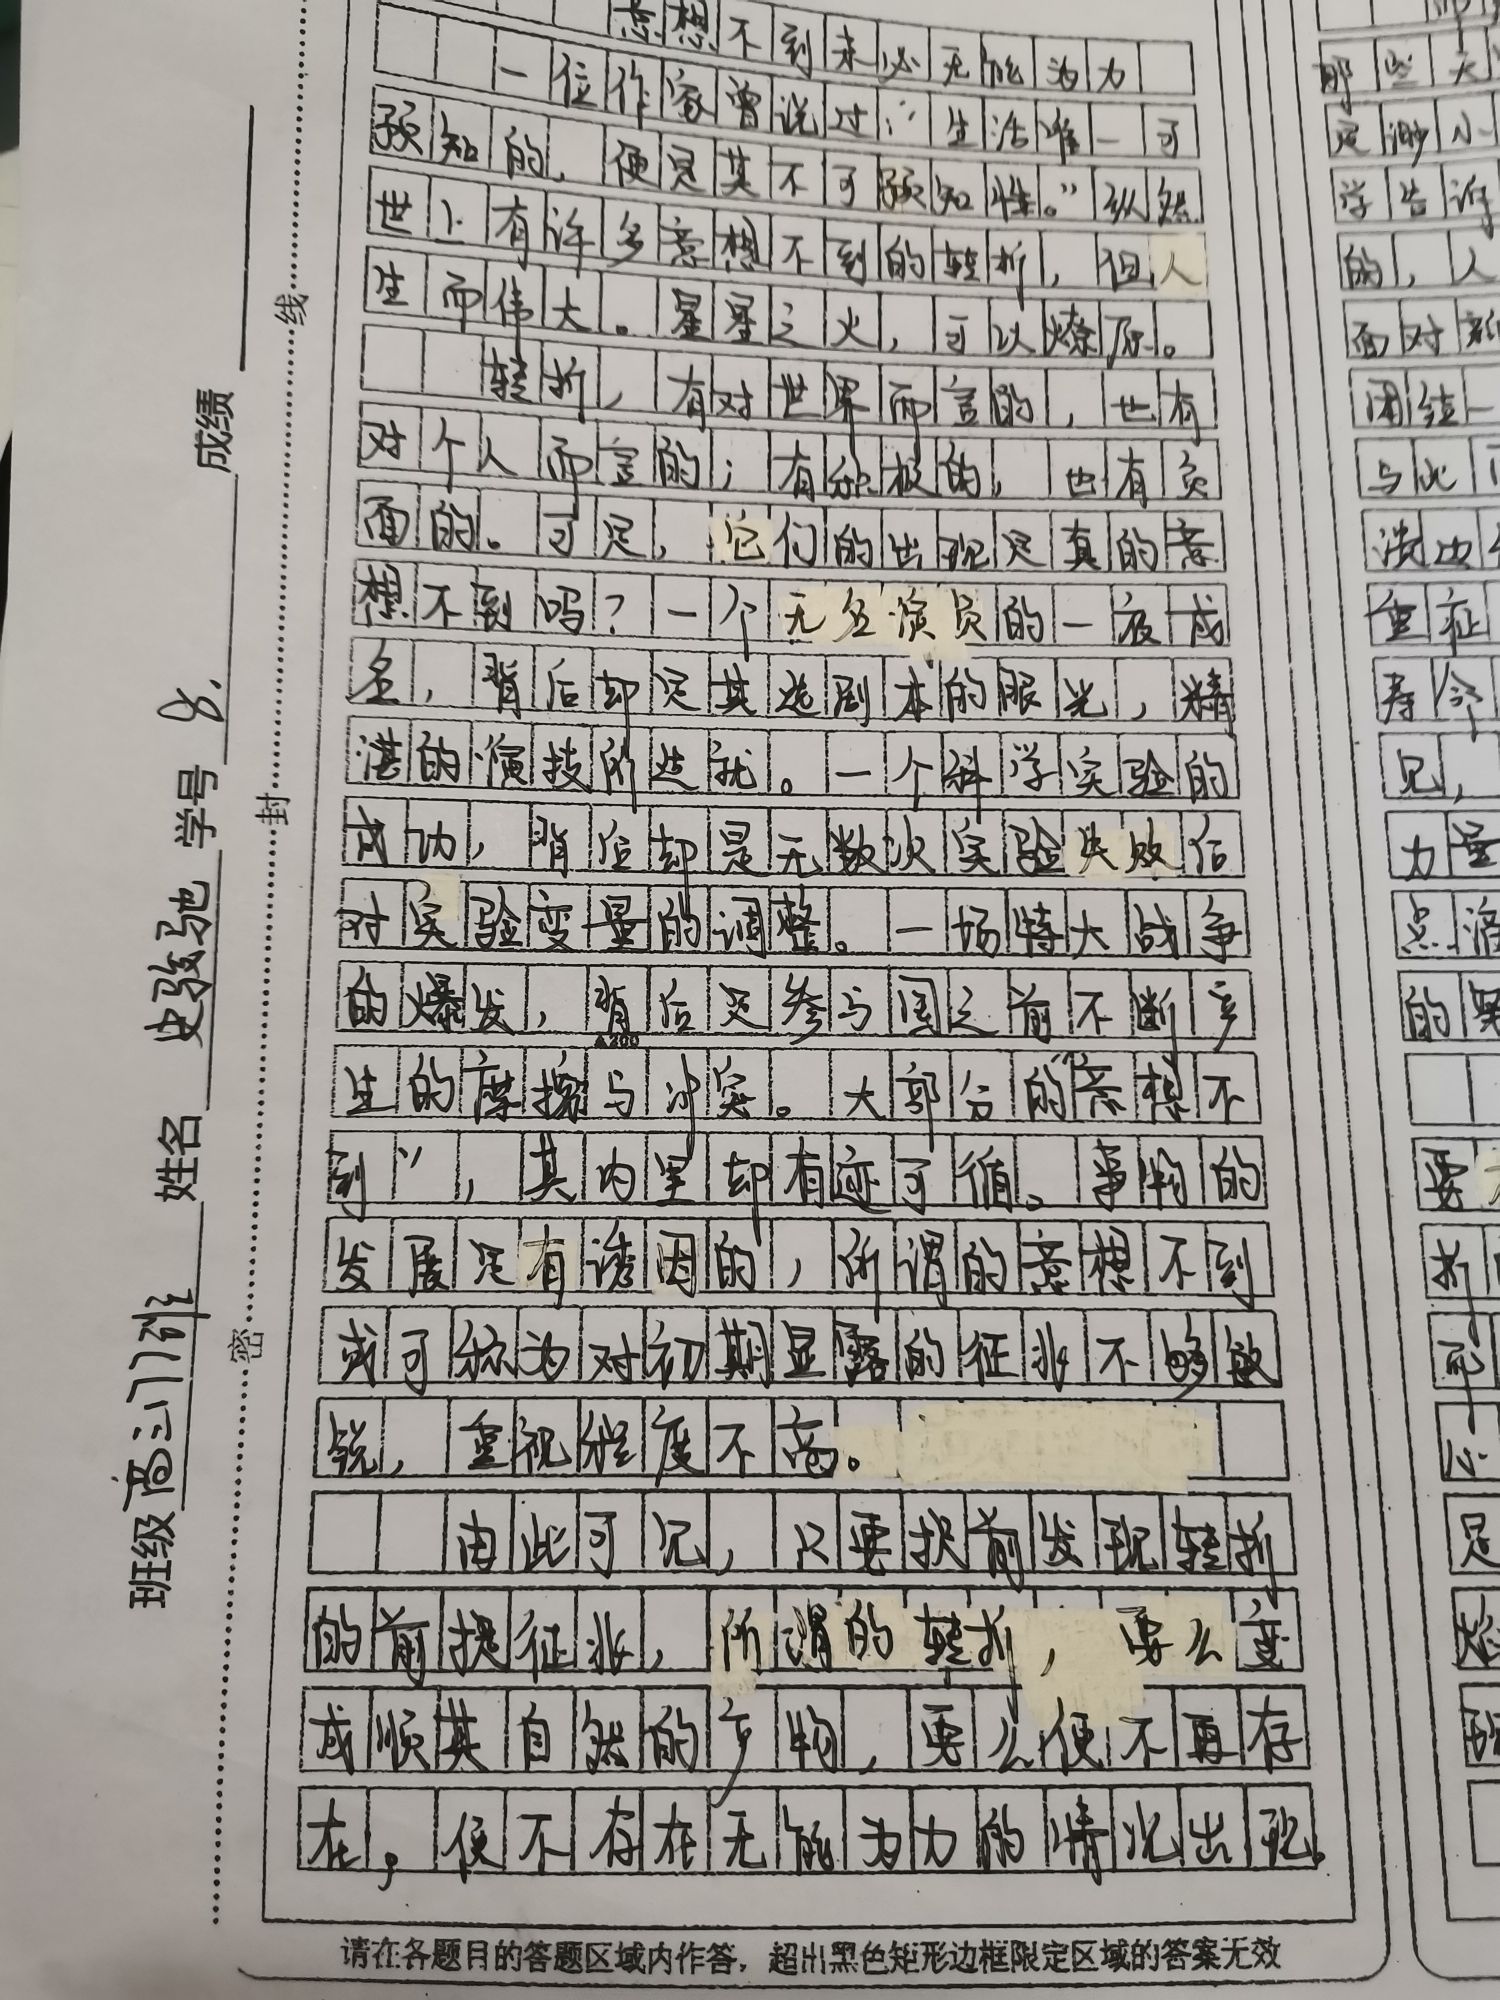 意想不到未必无能为力
一位作家曾说过:“生活唯一可
预知的,便是其不可预知性。”纵然
世上有许多意想不到的转折,但人
生而伟大。星星之火,可以燎原。
转折,有对世界而言的,也有
对个人而言的;有积极的,也有负
面的。可是,它们的出现是真的意
想不到吗?一个无名演员的一夜成
名,背后却是其选剧本的眼光,精
湛的演技所造就。一个科学实验的
成功,背后却是无数次实验失败后
对实验变量的调整。一场特大战争
的爆发,背后是参与国之前不断产
▲200
生的摩擦与冲突。大部分的“意想不
到”,其内里却有迹可循。事物的
发展是有诱因的,所谓的意想不到
或可称为对初期显露的征兆不够敏
锐,重视程度不高。
由此可见,只要提前发现转折
的前提征兆,所谓的转折,要么变
成顺其自然的产物,要么便不再存
在,便不存在无能为力的情况出现。
请在各题目的答题区域内作答,超出黑色矩形边框限定区域的答案无效
班级 高三11班 姓名 史骏驰 学号 8. 成绩
密 封 线
那些
是渺小
学告诉
的,人
面对
团结一
与此
重症
寿命
见,
力量
点滴
的
要
折
死
心
足